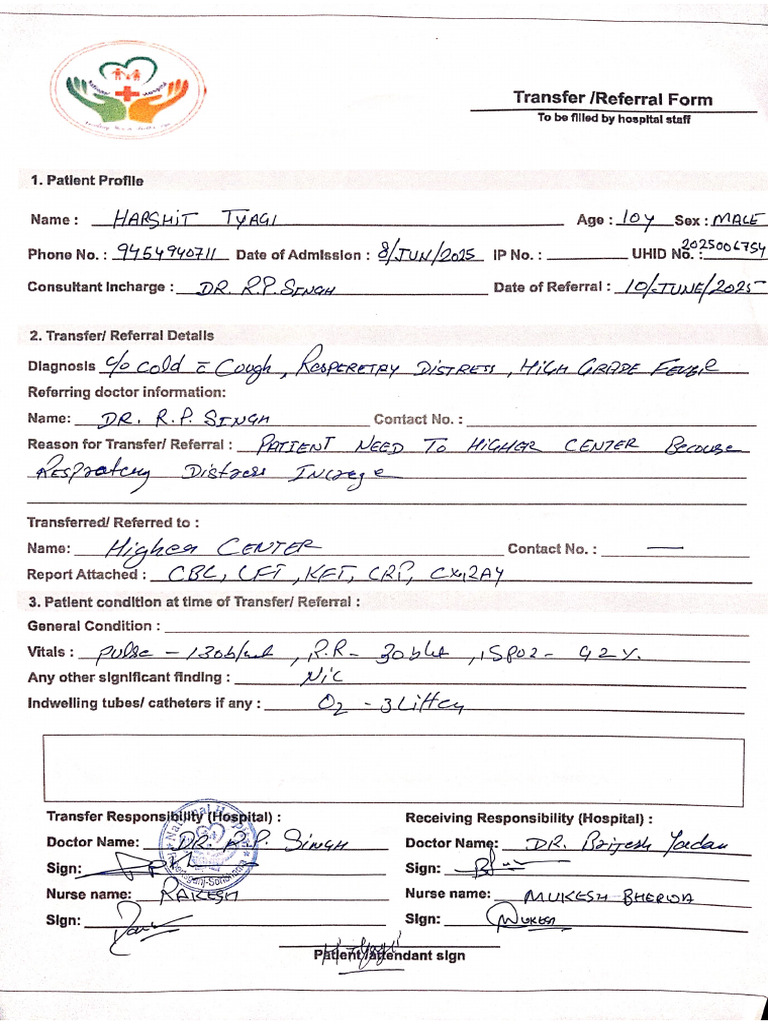 Transfer /Referral Form
To be filled by hospital staff
1. Patient Profile
Name : HARSHIT TYAGI Age : 10Y Sex : MALE
Phone No. : 9454940711 Date of Admission : 8/JUN/2025 IP No. : UHID No. : 2025006754
Consultant Incharge : DR. R.P. SINGH Date of Referral : 10/-JUNE/2025
2. Transfer/ Referral Details
Diagnosis c/o Cold c̄ Cough, RESPERETRY DISTRESS, HIGH GRADE FEVER
Referring doctor information:
Name: DR. R.P. SINGH Contact No. :
Reason for Transfer/ Referral : PATIENT NEED TO HIGHER CENTER Becouse
Respratory Distress Increge
Transferred/ Referred to :
Name: Higher CENTER Contact No. : —
Report Attached : CBC, LFT, KFT, CRP,
3. Patient condition at time of Transfer/ Referral :
General Condition :
Vitals : Pulse - 130b/ , R.R - 30 , SPO2 - 92%.
Any other significant finding : Nil
Indwelling tubes/ catheters if any : O2 - 3
Transfer Responsibility (Hospital) : Receiving Responsibility (Hospital) :
Doctor Name: DR. R.P. SINGH Doctor Name: DR. Brijesh Yadav
Sign: Sign:
Nurse name: RAKESH Nurse name: MUKESH BHERWA
Sign: Sign: Mukesh
Patient /attendant sign
National Hospital